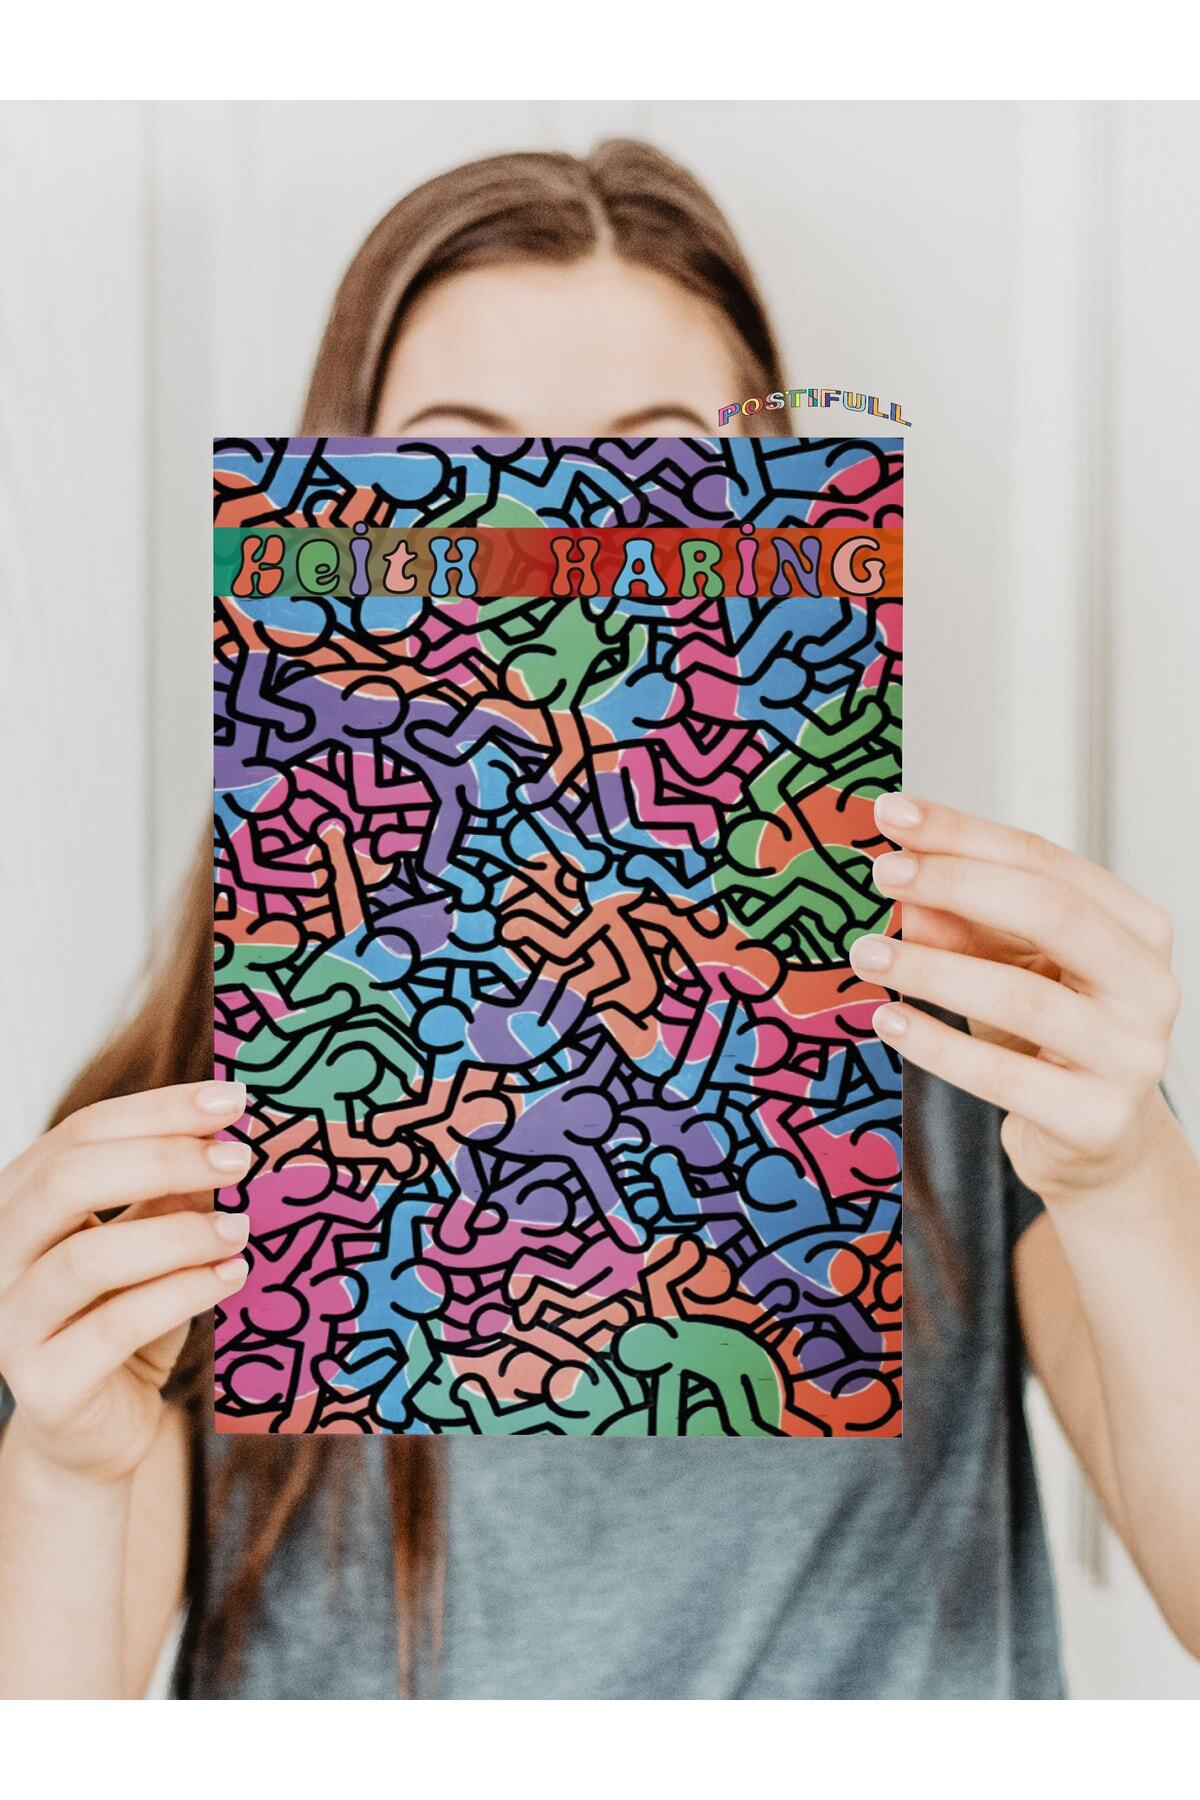 POSTIFULL
KEitH HARiNG